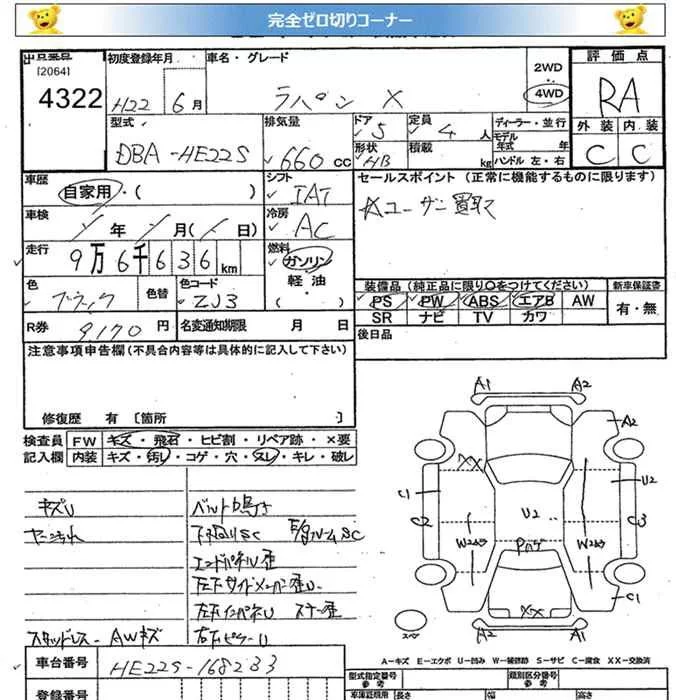 完全ゼロ切りコーナー
[2064]
4322
初度登録年月
H22 6月
車名・グレード
ラパン X
2WD
4WD
評価点
RA
型式
DBA-HE22S
排気量
660 cc
ドア
5
定員
4 人
形状
HB
積載
kg
ディーラー・並行
モデル年式 年
ハンドル 左・右
外装 内装
C C
車歴
自家用・( )
シフト
IAT
車検
年 月( 日)
冷房
AC
走行
9万6千636km
燃料
ガソリン
軽油
( )
色
ブラック
色替
色コード
ZJ3
R券 9170円
名変通知期限 月 日
セールスポイント(正常に機能するものに限ります)
ユーザー買取
装備品(純正品に限り○をつけてください)
PS PW ABS エアB AW
SR ナビ TV カワ
新車保証書
有・無
後日品
注意事項申告欄(不具合内容等は具体的に記入して下さい)
修復歴 有 [箇所 ]
検査員記入欄
FW キズ・飛石・ヒビ割・リペア跡・×要
内装 キズ・汚レ・コゲ・穴・スレ・キレ・破レ
キズU
ベルト鳴き
エンドパネル歪
スタッドレス - AWキズ
車台番号
HE22S-168283
登録番号
A1 A2
A2
XX
C1
U2
C2
U2
C3
W2
Pハゲ
W2
XX
C1
A2 A1
スペア
A-キズ E-エクボ U-凹み W-補修跡 S-サビ C-腐食 XX-交換済
型式指定番号
参考
類別区分番号
参考
車庫証明用
参考
長さ
幅
高さ